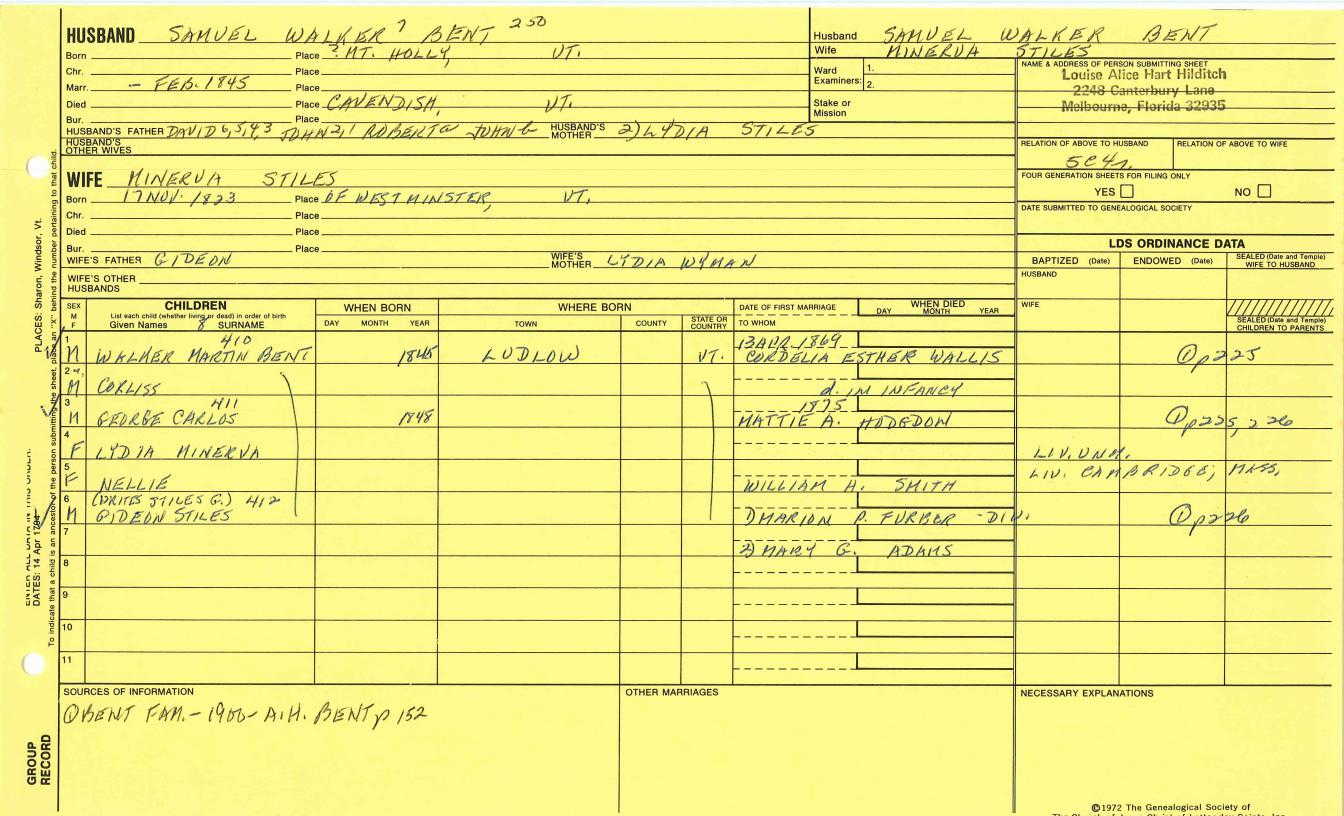 HUSBAND SAMUEL WALKER 7 BENT 250
Born Place ? MT. HOLLY, VT.
Chr. Place
Marr. - FEB. 1845 Place
Died Place CAVENDISH, VT.
Bur. Place
HUSBAND'S FATHER DAVID 6,5,4,3 JOHN 2,1 ROBERT a JOHN b HUSBAND'S MOTHER 2) LYDIA STILES
HUSBAND'S OTHER WIVES
Husband SAMUEL WALKER BENT
Wife MINERVA STILES
Ward Examiners: 1.
2.
Stake or Mission
NAME & ADDRESS OF PERSON SUBMITTING SHEET
Louise Alice Hart Hilditch
2248 Canterbury Lane
Melbourne, Florida 32935
RELATION OF ABOVE TO HUSBAND RELATION OF ABOVE TO WIFE
5C4r.
FOUR GENERATION SHEETS FOR FILING ONLY
YES NO
DATE SUBMITTED TO GENEALOGICAL SOCIETY
WIFE MINERVA STILES
Born 17 NOV. 1823 Place OF WESTMINSTER, VT.
Chr. Place
Died Place
Bur. Place
WIFE'S FATHER GIDEON WIFE'S MOTHER LYDIA WYMAN
WIFE'S OTHER HUSBANDS
LDS ORDINANCE DATA
BAPTIZED (Date) ENDOWED (Date) SEALED (Date and Temple) WIFE TO HUSBAND
HUSBAND
WIFE
SEALED (Date and Temple) CHILDREN TO PARENTS
SEX M F CHILDREN WHEN BORN WHERE BORN DATE OF FIRST MARRIAGE WHEN DIED
List each child (whether living or dead) in order of birth
Given Names 8 SURNAME DAY MONTH YEAR TOWN COUNTY STATE OR COUNTRY TO WHOM DAY MONTH YEAR
1 410 13 APR 1869
M WALKER MARTIN BENT 1845 LUDLOW VT. CORDELIA ESTHER WALLIS ① p225
2
M CORLISS d. IM INFANCY
3 411 1875
M GEORGE CARLOS 1848 MATTIE A. HODGDON ① p225, 226
4
F LYDIA MINERVA LIV. UNM.
5 LIV. CAMBRIDGE, MASS.
F NELLIE WILLIAM H. SMITH
6 (WRITES STILES G.) 412
M GIDEON STILES 1) MARION P. FURBER - DIV. ① p226
7
2) MARY G. ADAMS
8
9
10
11
SOURCES OF INFORMATION
① BENT FAM. - 1900 - A.H. BENT p 152
OTHER MARRIAGES
NECESSARY EXPLANATIONS
©1972 The Genealogical Society of
GROUP RECORD
ENTER ALL DATA IN THIS ORDER:
DATES: 14 Apr 1794 PLACES: Sharon, Windsor, Vt.
To indicate that a child is an ancestor of the person submitting the sheet, place an "X" behind the number pertaining to that child.